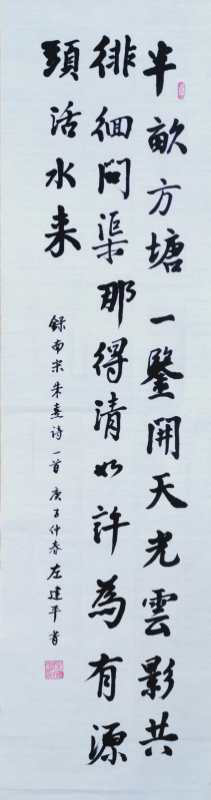 半畝方塘一鑒開天光雲影共
徘徊問渠那得清如許為有源
頭活水来
録南宋朱熹诗一首庚子仲春左建平書